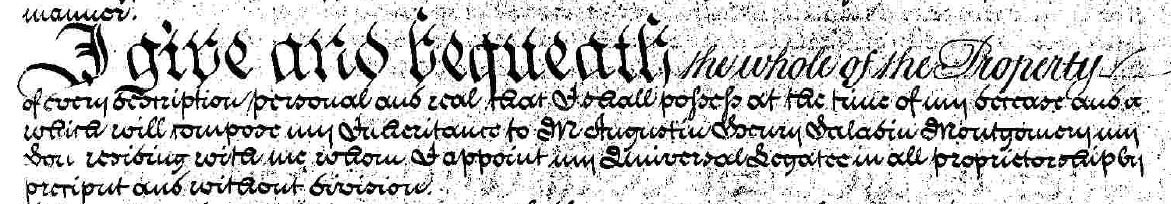 manner.
I give and bequeath the whole of the Property
of every description personal and real that I shall possess at the time of my decease and
which will compose my Inheritance to Mr Augustin Henry Saladin Montgomery my
Son residing with me whom I appoint my Universal Legatee in all proprietorship by
preciput and without division.